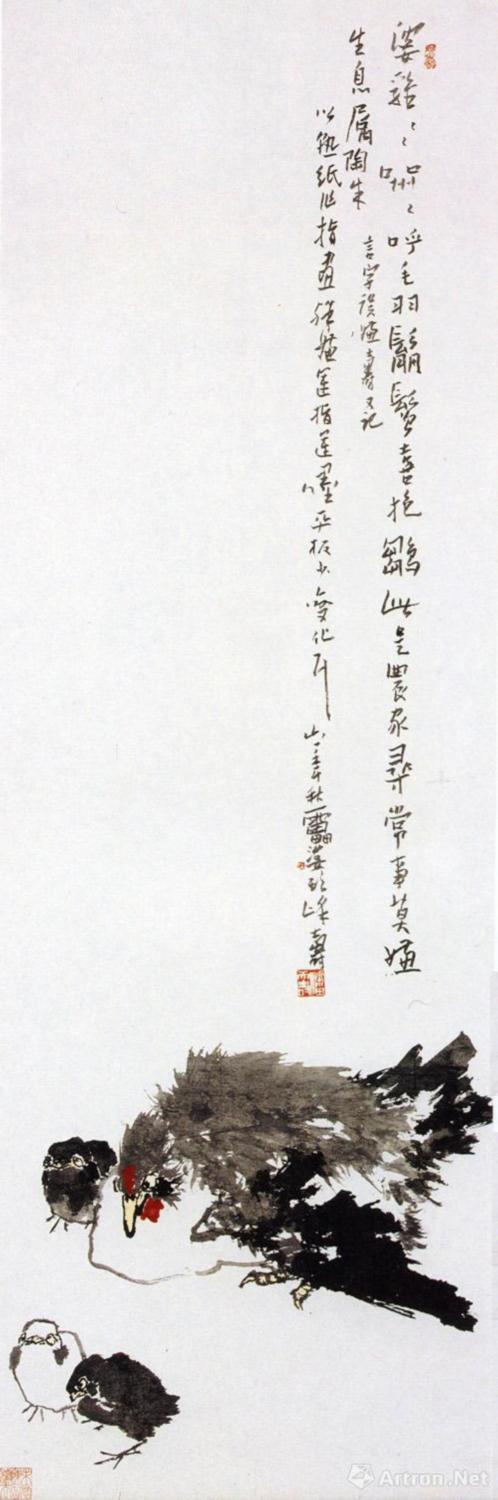 婆雞〻〻喌〻呼毛羽鬅鬙喜抱雛此是農家尋常事莫嫌
生息屬陶朱
壽又記
以熟紙作指畫殊嫌運指運墨平板少變化耳 秋雷婆頭峰壽
Artron.Net